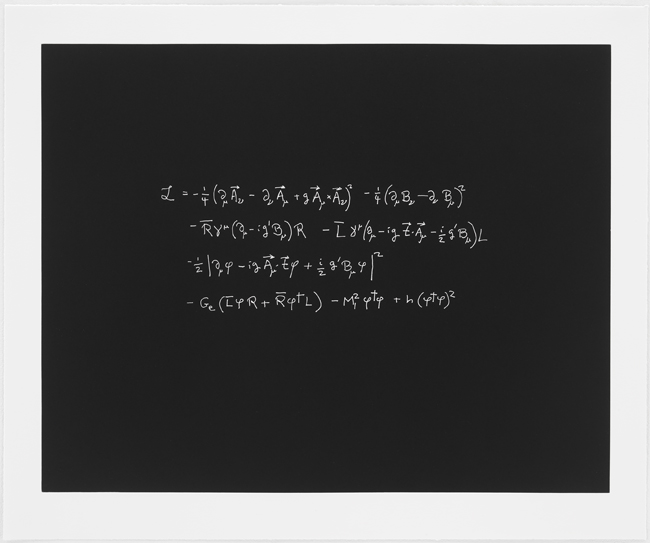 ℒ = -¼(∂_μ A⃗_ν - ∂_ν A⃗_μ + g A⃗_μ × A⃗_ν)² - ¼(∂_μ B_ν - ∂_ν B_μ)²
- R̄ γ^μ (∂_μ - ig'B_μ) R - L̄ γ^μ (∂_μ - ig t⃗·A⃗_μ - i/2 g'B_μ) L
- ½ |∂_μ φ - ig A⃗_μ·t⃗ φ + i/2 g'B_μ φ|²
- G_e (L̄ φ R + R̄ φ† L) - M₁² φ†φ + h (φ†φ)²